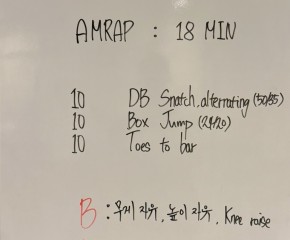 AMRAP : 18 MIN
10 DB Snatch. alternating (50/35)
10 Box Jump (24/20)
10 Toes to bar
B : 무게 자유, 높이 자유, Knee raise